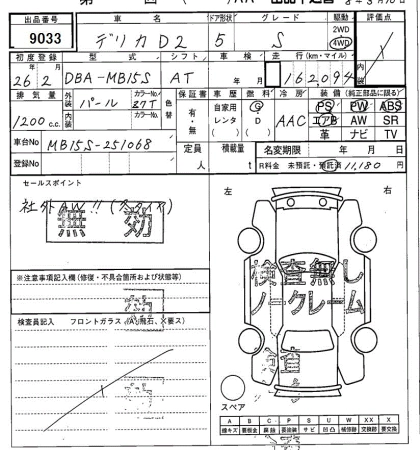 出品番号 車名 ドア形状 グレード 駆動 評価点
9033 デリカD2 5 S 2WD 4WD
初度登録 型式 シフト 車検 走行(km・マイル) 内装
26年2月 DBA-MB15S AT 年 月 162,094
排気量 外装 カラーNo. 色替 保証書 車歴 燃料 冷房 装備(純正部品に限る)
1200c.c. パール Z7T 有・無 自家用 レンタ ( ) G D ( ) AAC PS PW ABS
内装 カラーNo. エアB AW SR
革 ナビ TV
車台No MB15S-251068 定員 人 積載量 t 名変期限 年 月 日
登録No R料金 未預託・預託済 11,180円
セールスポイント
社外AW!!(スタイヤ)
無効
左 右
検査無し
ノークレーム
※注意事項記入欄(修復・不具合箇所および状態等)
検査員記入 フロントガラス(A,飛石、X要ス)
スペア
A B C P S U W XX X
線キズ 要板金 腐蝕 要塗装 サビ 凹凸 補修跡 交換跡 要交換